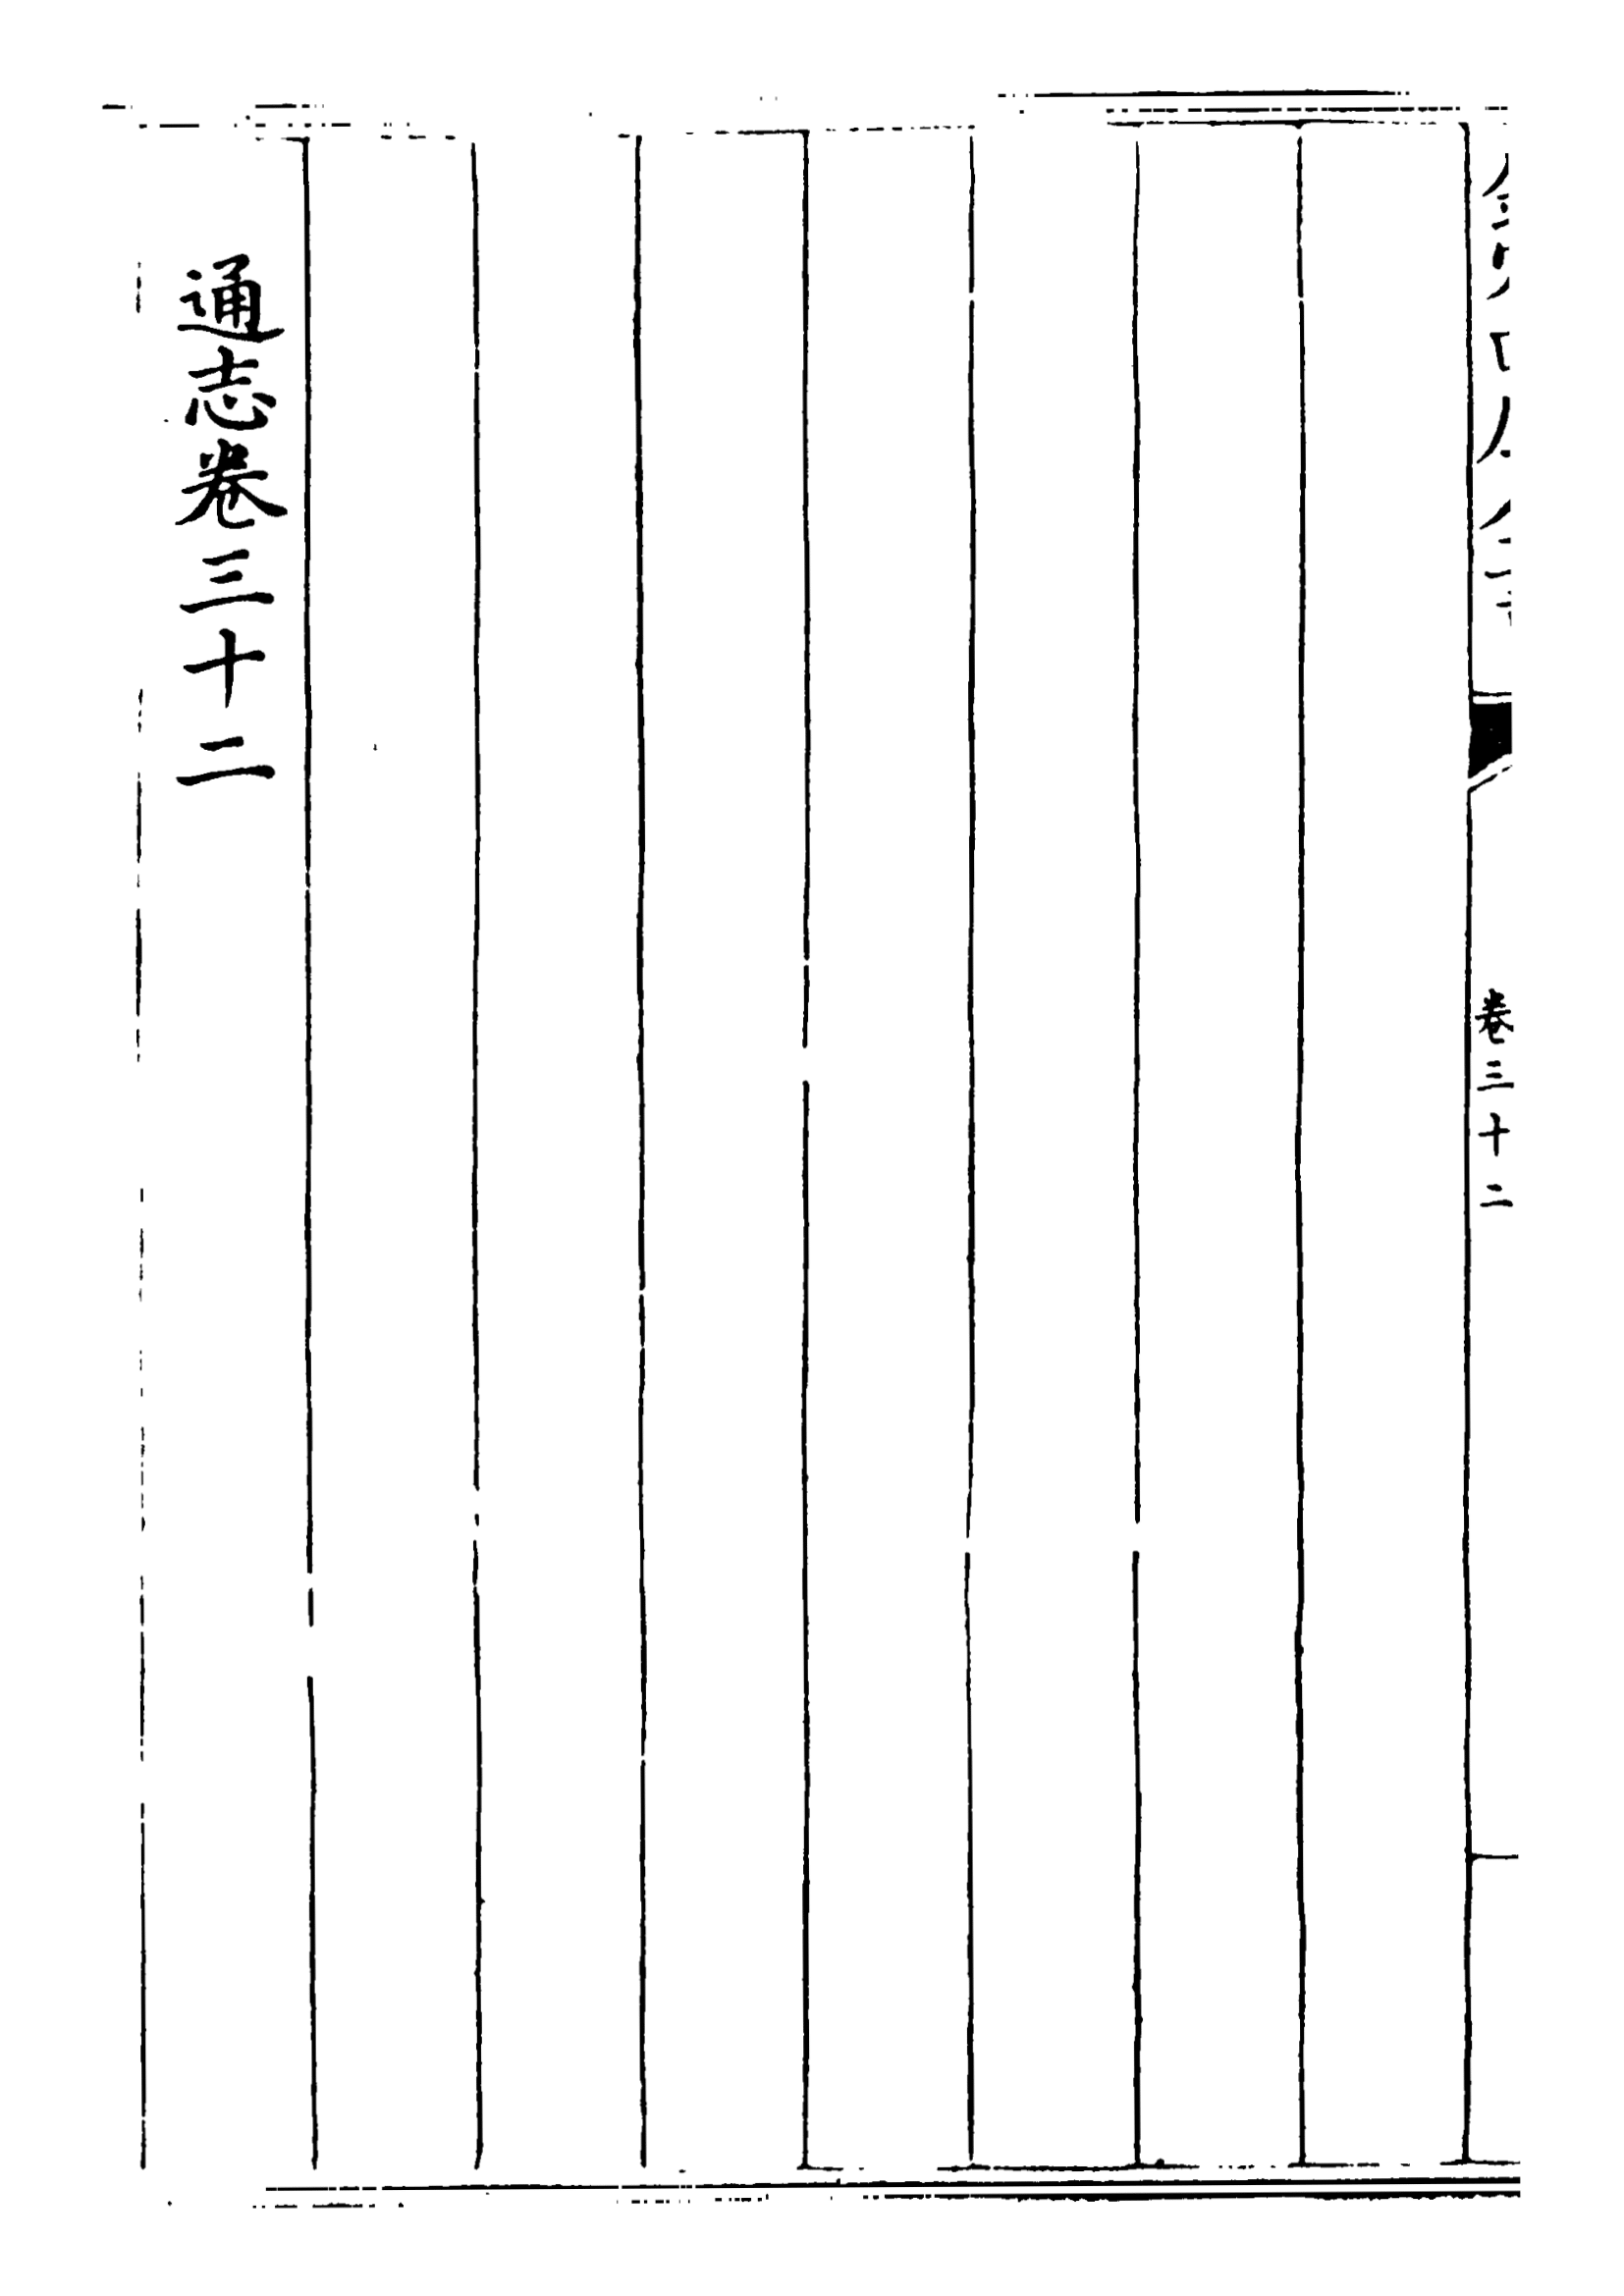 卷三十二
通志卷三十二